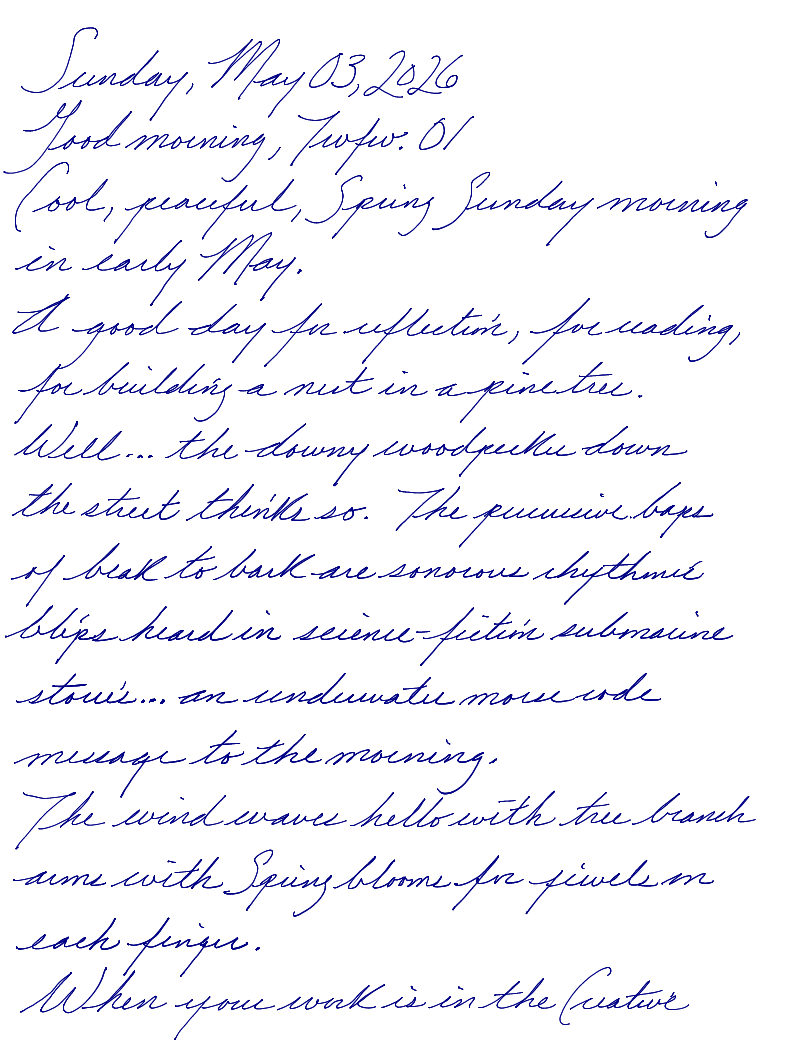 Sunday, May 03, 2026
Good morning, Twfw. 01
Cool, peaceful, Spring Sunday morning
in early May.
A good day for reflection, for reading,
for building a nest in a pine tree.
Well... the downy woodpecker down
the street thinks so. The percussive baps
of beak to bark are sonorous rhythmic
blips heard in science-fiction submarine
stories... an underwater morse code
message to the morning.
The wind waves hello with tree branch
arms with Spring blooms for jewels on
each finger.
When your work is in the Creative